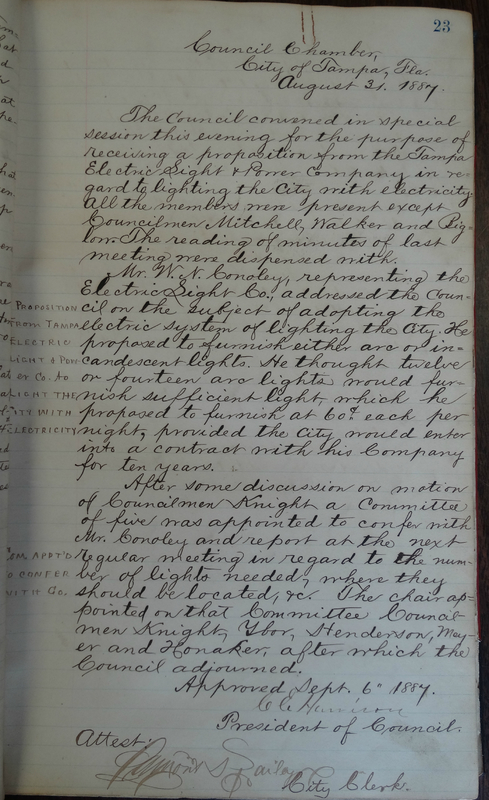 23
Council Chamber,
City of Tampa, Fla.
August 31. 1887.
The Council convened in special
session this evening for the purpose of
receiving a proposition from the Tampa
Electric Light & Power Company in re-
gard to lighting the City with electricity.
All the members were present except
Councilmen Mitchell, Walker and Big-
low. The reading of minutes of last
meeting were dispensed with.
Mr. W. N. Conoley, representing the
Electric Light Co., addressed the Coun-
cil on the subject of adopting the
electric system of lighting the City. He
proposed to furnish either arc or in-
candescent lights. He thought twelve
or fourteen arc lights would fur-
nish sufficient light, which he
proposed to furnish at 60¢ each per
night, provided the City would enter
into a contract with his Company
for ten years.
PROPOSITION
FROM TAMPA
ELECTRIC
LIGHT & POW
ER CO. TO
LIGHT THE
CITY WITH
ELECTRICITY
After some discussion on motion
of Councilmen Knight a Committee
of five was appointed to confer with
Mr. Conoley and report at the next
regular meeting in regard to the num-
ber of lights needed, where they
should be located, &c. The chair ap-
pointed on that Committee Council-
men Knight, Ybor, Henderson, May-
er and Honaker, after which the
Council adjourned.
COM. APPT'D
TO CONFER
WITH CO.
Approved Sept. 6" 1887.
President of Council.
Attest:
City Clerk.